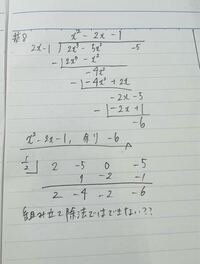 #8
x² - 2x - 1
2x-1 ) 2x³ - 5x² -5
-) 2x³ - x²
-4x²
-) -4x² + 2x
-2x -5
-) -2x + 1
-6
x² - 2x - 1, 余り -6
1/2 | 2 -5 0 -5
1 -2 -1
2 -4 -2 -6
組み立て除法ではできない??